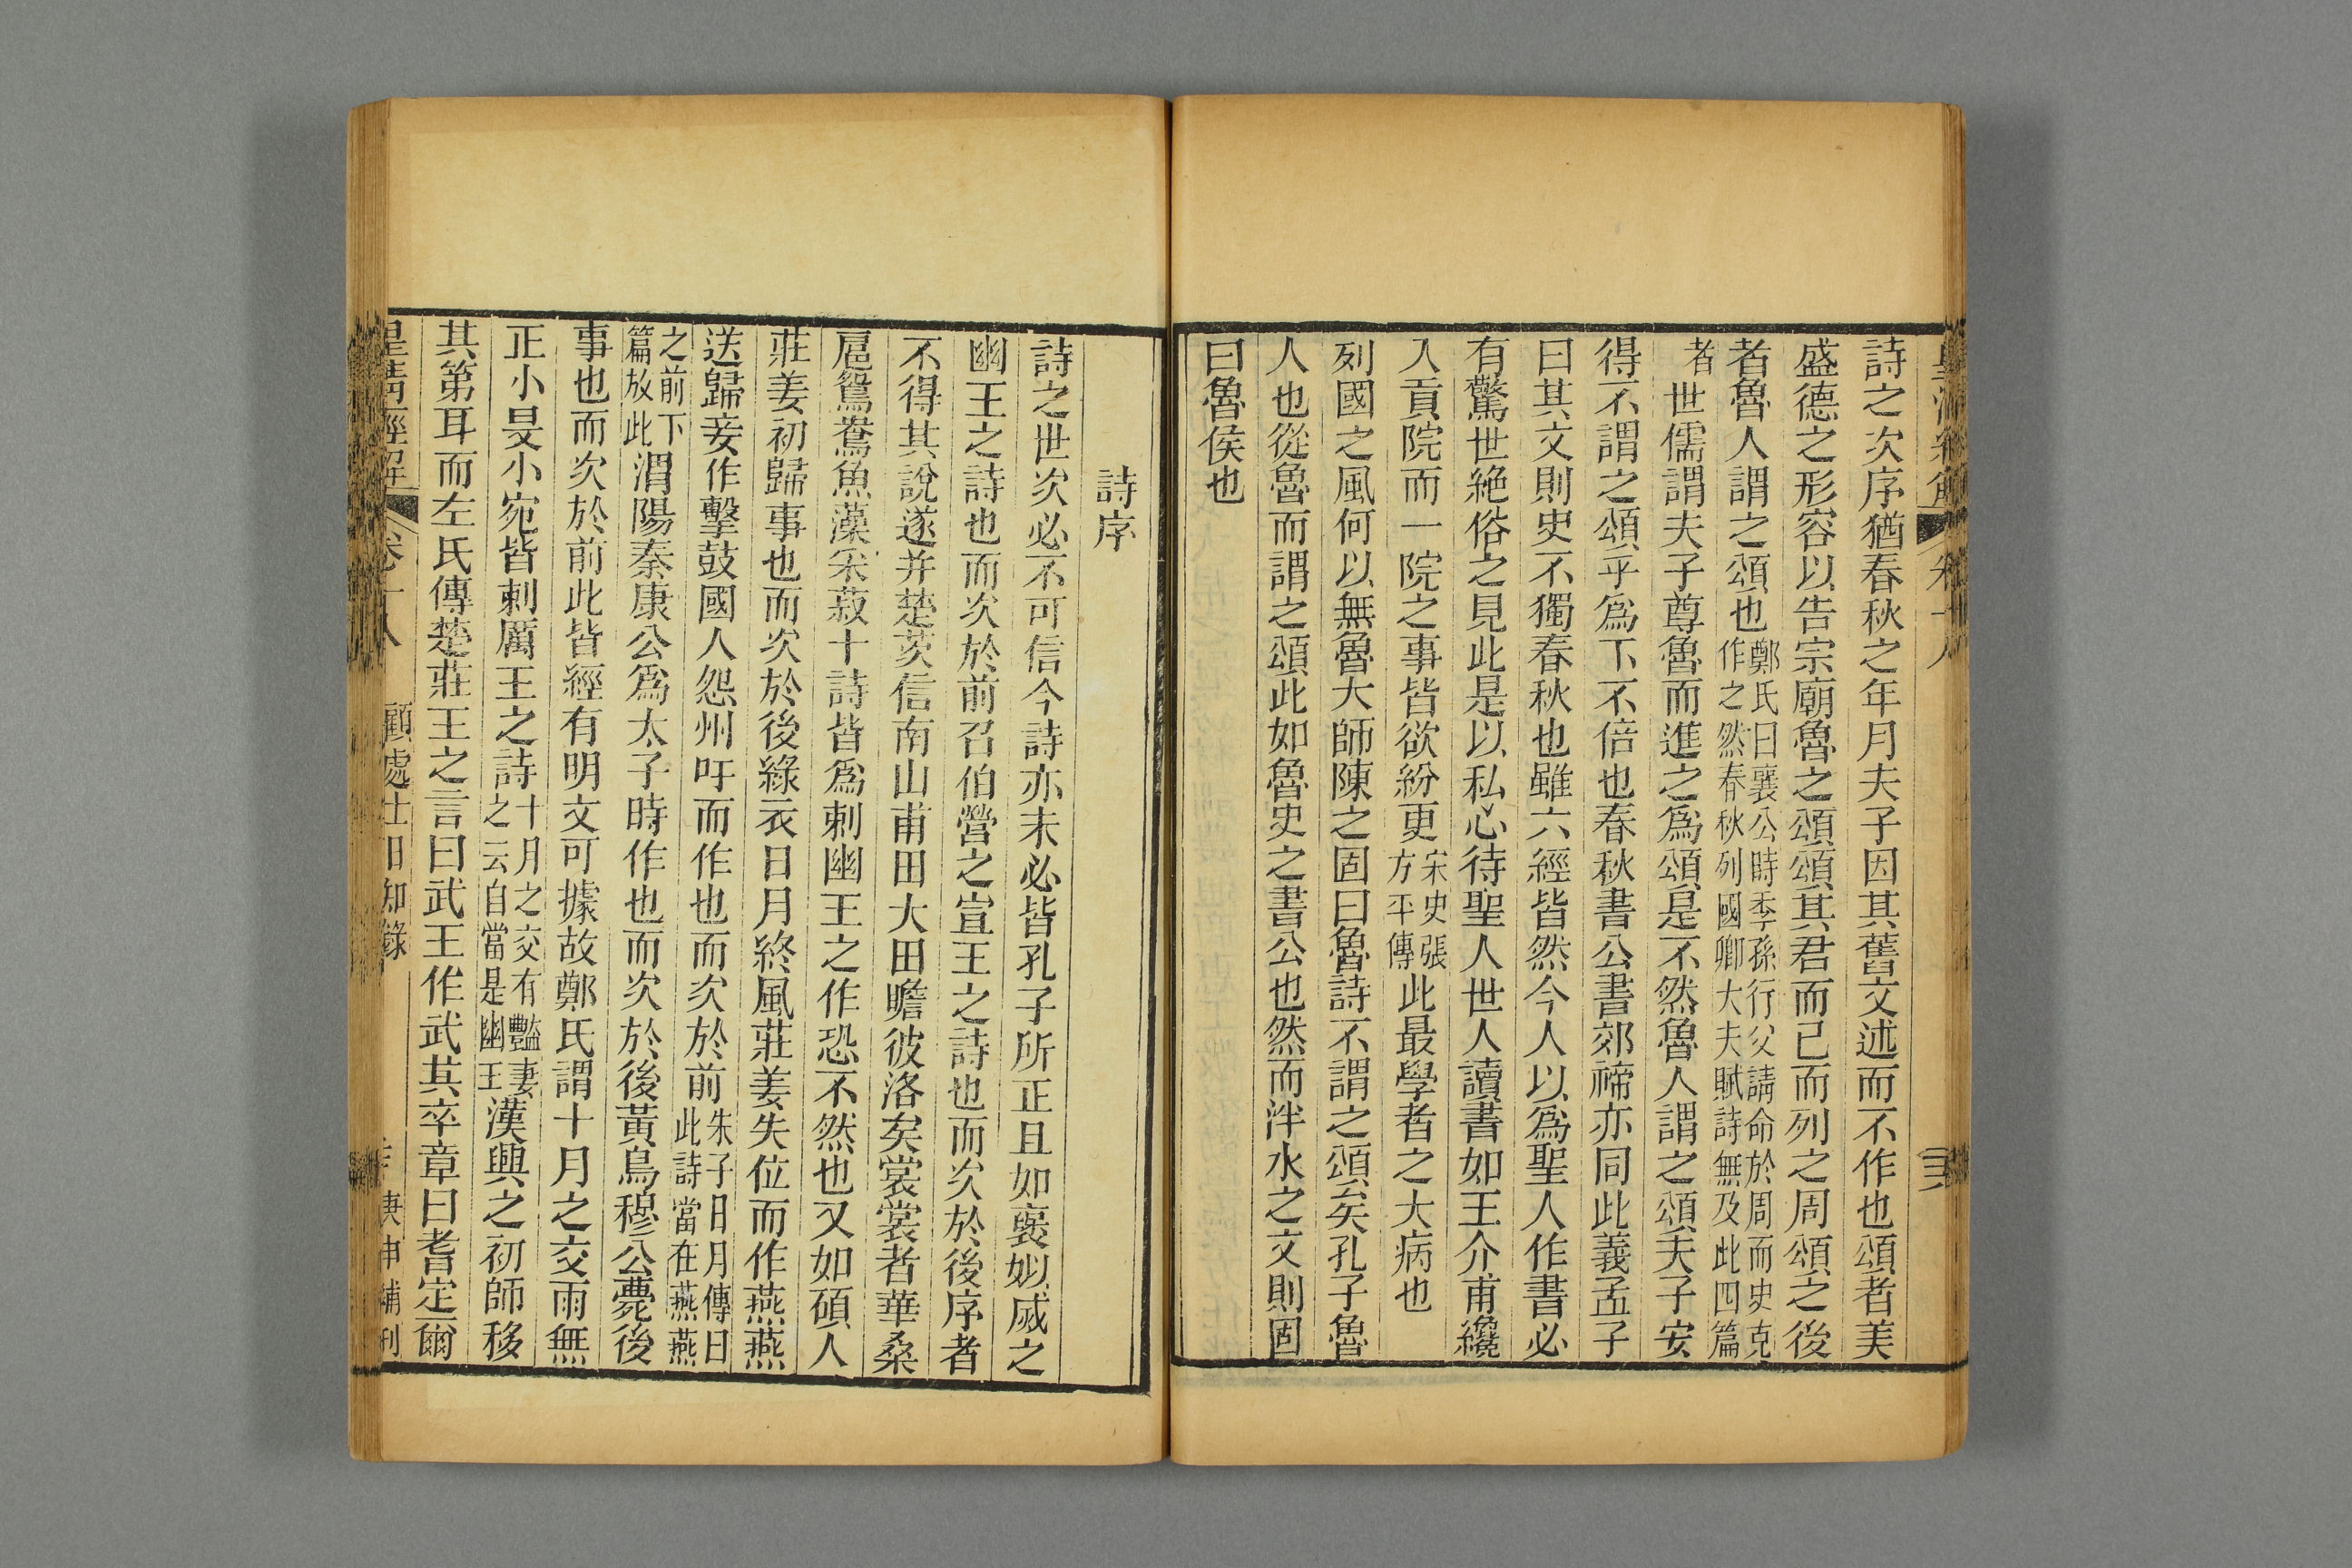 詩之次序猶春秋之年月夫子因其舊文述而不作也頌者美
盛德之形容以告宗廟魯之頌頌其君而已而列之周頌之後
者魯人謂之頌也鄭氏曰襄公時季孫行父請命於周而史克作之然春秋列國卿大夫賦詩無及此四篇
者世儒謂夫子尊魯而進之爲頌是不然魯人謂之頌夫子安
得不謂之頌乎爲下不倍也春秋書公書郊禘亦同此義孟子
曰其文則史不獨春秋也雖六經皆然今人以爲聖人作書必
有驚世絶俗之見此是以私心待聖人世人讀書如王介甫纔
入貢院而一院之事皆欲紛更宋史張方平傳此最學者之大病也
列國之風何以無魯大師陳之固曰魯詩不謂之頌矣孔子魯
人也從魯而謂之頌此如魯史之書公也然而泮水之文則固
曰魯侯也
詩序
詩之世次必不可信今詩亦未必皆孔子所正且如襃姒威之
幽王之詩也而次於前召伯營之宣王之詩也而次於後序者
不得其說遂并楚茨信南山甫田大田瞻彼洛矣裳裳者華桑
扈鴛鴦魚藻采菽十詩皆爲刺幽王之作恐不然也又如碩人
莊姜初歸事也而次於後綠衣日月終風莊姜失位而作燕燕
送歸妾作擊鼓國人怨州吁而作也而次於前朱子日月傳曰此詩當在燕燕
之前下篇放此渭陽秦康公爲太子時作也而次於後黃鳥穆公薨後
事也而次於前此皆經有明文可據故鄭氏謂十月之交雨無
正小旻小宛皆刺厲王之詩十月之交有豔妻之云自當是幽王漢興之初師移
其第耳而左氏傳楚莊王之言曰武王作武其卒章曰耆定爾
皇清經解 卷十八 顧處士日知錄 庚申補刊